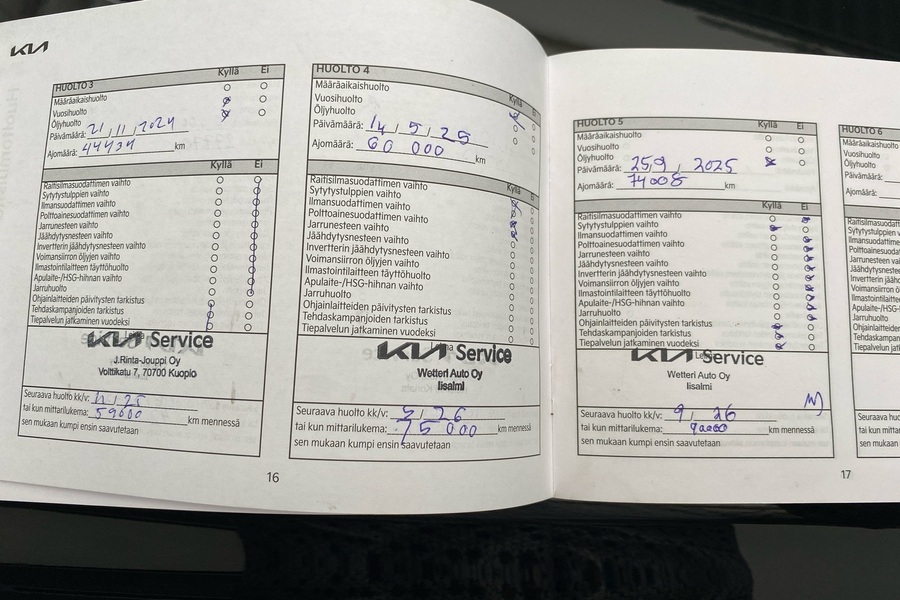 KIA
HUOLTO 3 Kyllä Ei
Määräaikaishuolto
Vuosihuolto
Öljyhuolto
Päivämäärä: 21, 11, 2024
Ajomäärä: 44434 km
Kyllä Ei
Raitisilmasuodattimen vaihto
Sytytystulppien vaihto
Ilmansuodattimen vaihto
Polttoainesuodattimen vaihto
Jarrunesteen vaihto
Jäähdytysnesteen vaihto
Invertterin jäähdytysnesteen vaihto
Voimansiirron öljyjen vaihto
Ilmastointilaitteen täyttöhuolto
Apulaite-/HSG-hihnan vaihto
Jarruhuolto
Ohjainlaitteiden päivitysten tarkistus
Tehdaskampanjoiden tarkistus
Tiepalvelun jatkaminen vuodeksi
KIA Service
J.Rinta-Jouppi Oy
Volttikatu 7, 70700 Kuopio
Seuraava huolto kk/v: 11, 25
tai kun mittarilukema: 59000 km mennessä
sen mukaan kumpi ensin saavutetaan
16
HUOLTO 4 Kyllä Ei
Määräaikaishuolto
Vuosihuolto
Öljyhuolto
Päivämäärä: 14, 5, 25
Ajomäärä: 60 000 km
Kyllä Ei
Raitisilmasuodattimen vaihto
Sytytystulppien vaihto
Ilmansuodattimen vaihto
Polttoainesuodattimen vaihto
Jarrunesteen vaihto
Jäähdytysnesteen vaihto
Invertterin jäähdytysnesteen vaihto
Voimansiirron öljyjen vaihto
Ilmastointilaitteen täyttöhuolto
Apulaite-/HSG-hihnan vaihto
Jarruhuolto
Ohjainlaitteiden päivitysten tarkistus
Tehdaskampanjoiden tarkistus
Tiepalvelun jatkaminen vuodeksi
KIA Service
Wetteri Auto Oy
Iisalmi
Seuraava huolto kk/v: 5, 26
tai kun mittarilukema: 75 000 km mennessä
sen mukaan kumpi ensin saavutetaan
HUOLTO 5 Kyllä Ei
Määräaikaishuolto
Vuosihuolto
Öljyhuolto
Päivämäärä: 25,9, 2025
Ajomäärä: 74008 km
Kyllä Ei
Raitisilmasuodattimen vaihto
Sytytystulppien vaihto
Ilmansuodattimen vaihto
Polttoainesuodattimen vaihto
Jarrunesteen vaihto
Jäähdytysnesteen vaihto
Invertterin jäähdytysnesteen vaihto
Voimansiirron öljyjen vaihto
Ilmastointilaitteen täyttöhuolto
Apulaite-/HSG-hihnan vaihto
Jarruhuolto
Ohjainlaitteiden päivitysten tarkistus
Tehdaskampanjoiden tarkistus
Tiepalvelun jatkaminen vuodeksi
KIA Service
Wetteri Auto Oy
Iisalmi
Seuraava huolto kk/v: 9, 26
tai kun mittarilukema: 90000 km mennessä
sen mukaan kumpi ensin saavutetaan
17
HUOLTO 6
Määräaikaishuolto
Vuosihuolto
Öljyhuolto
Päivämäärä:
Ajomäärä: